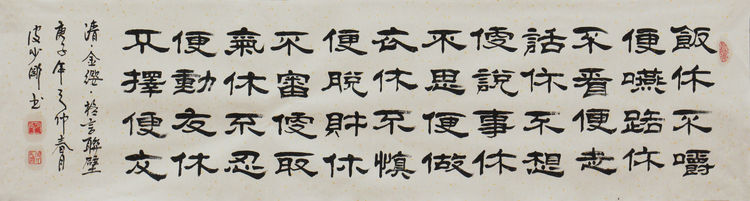 飯休不嚼
便嚥路休
不看便走
話休不想
便說事休
不思便做
衣休不慎
便脫財休
不審便取
氣休不忍
便動友休
不擇便交
清·金纓·格言聯璧
庚子年之仲春月
书